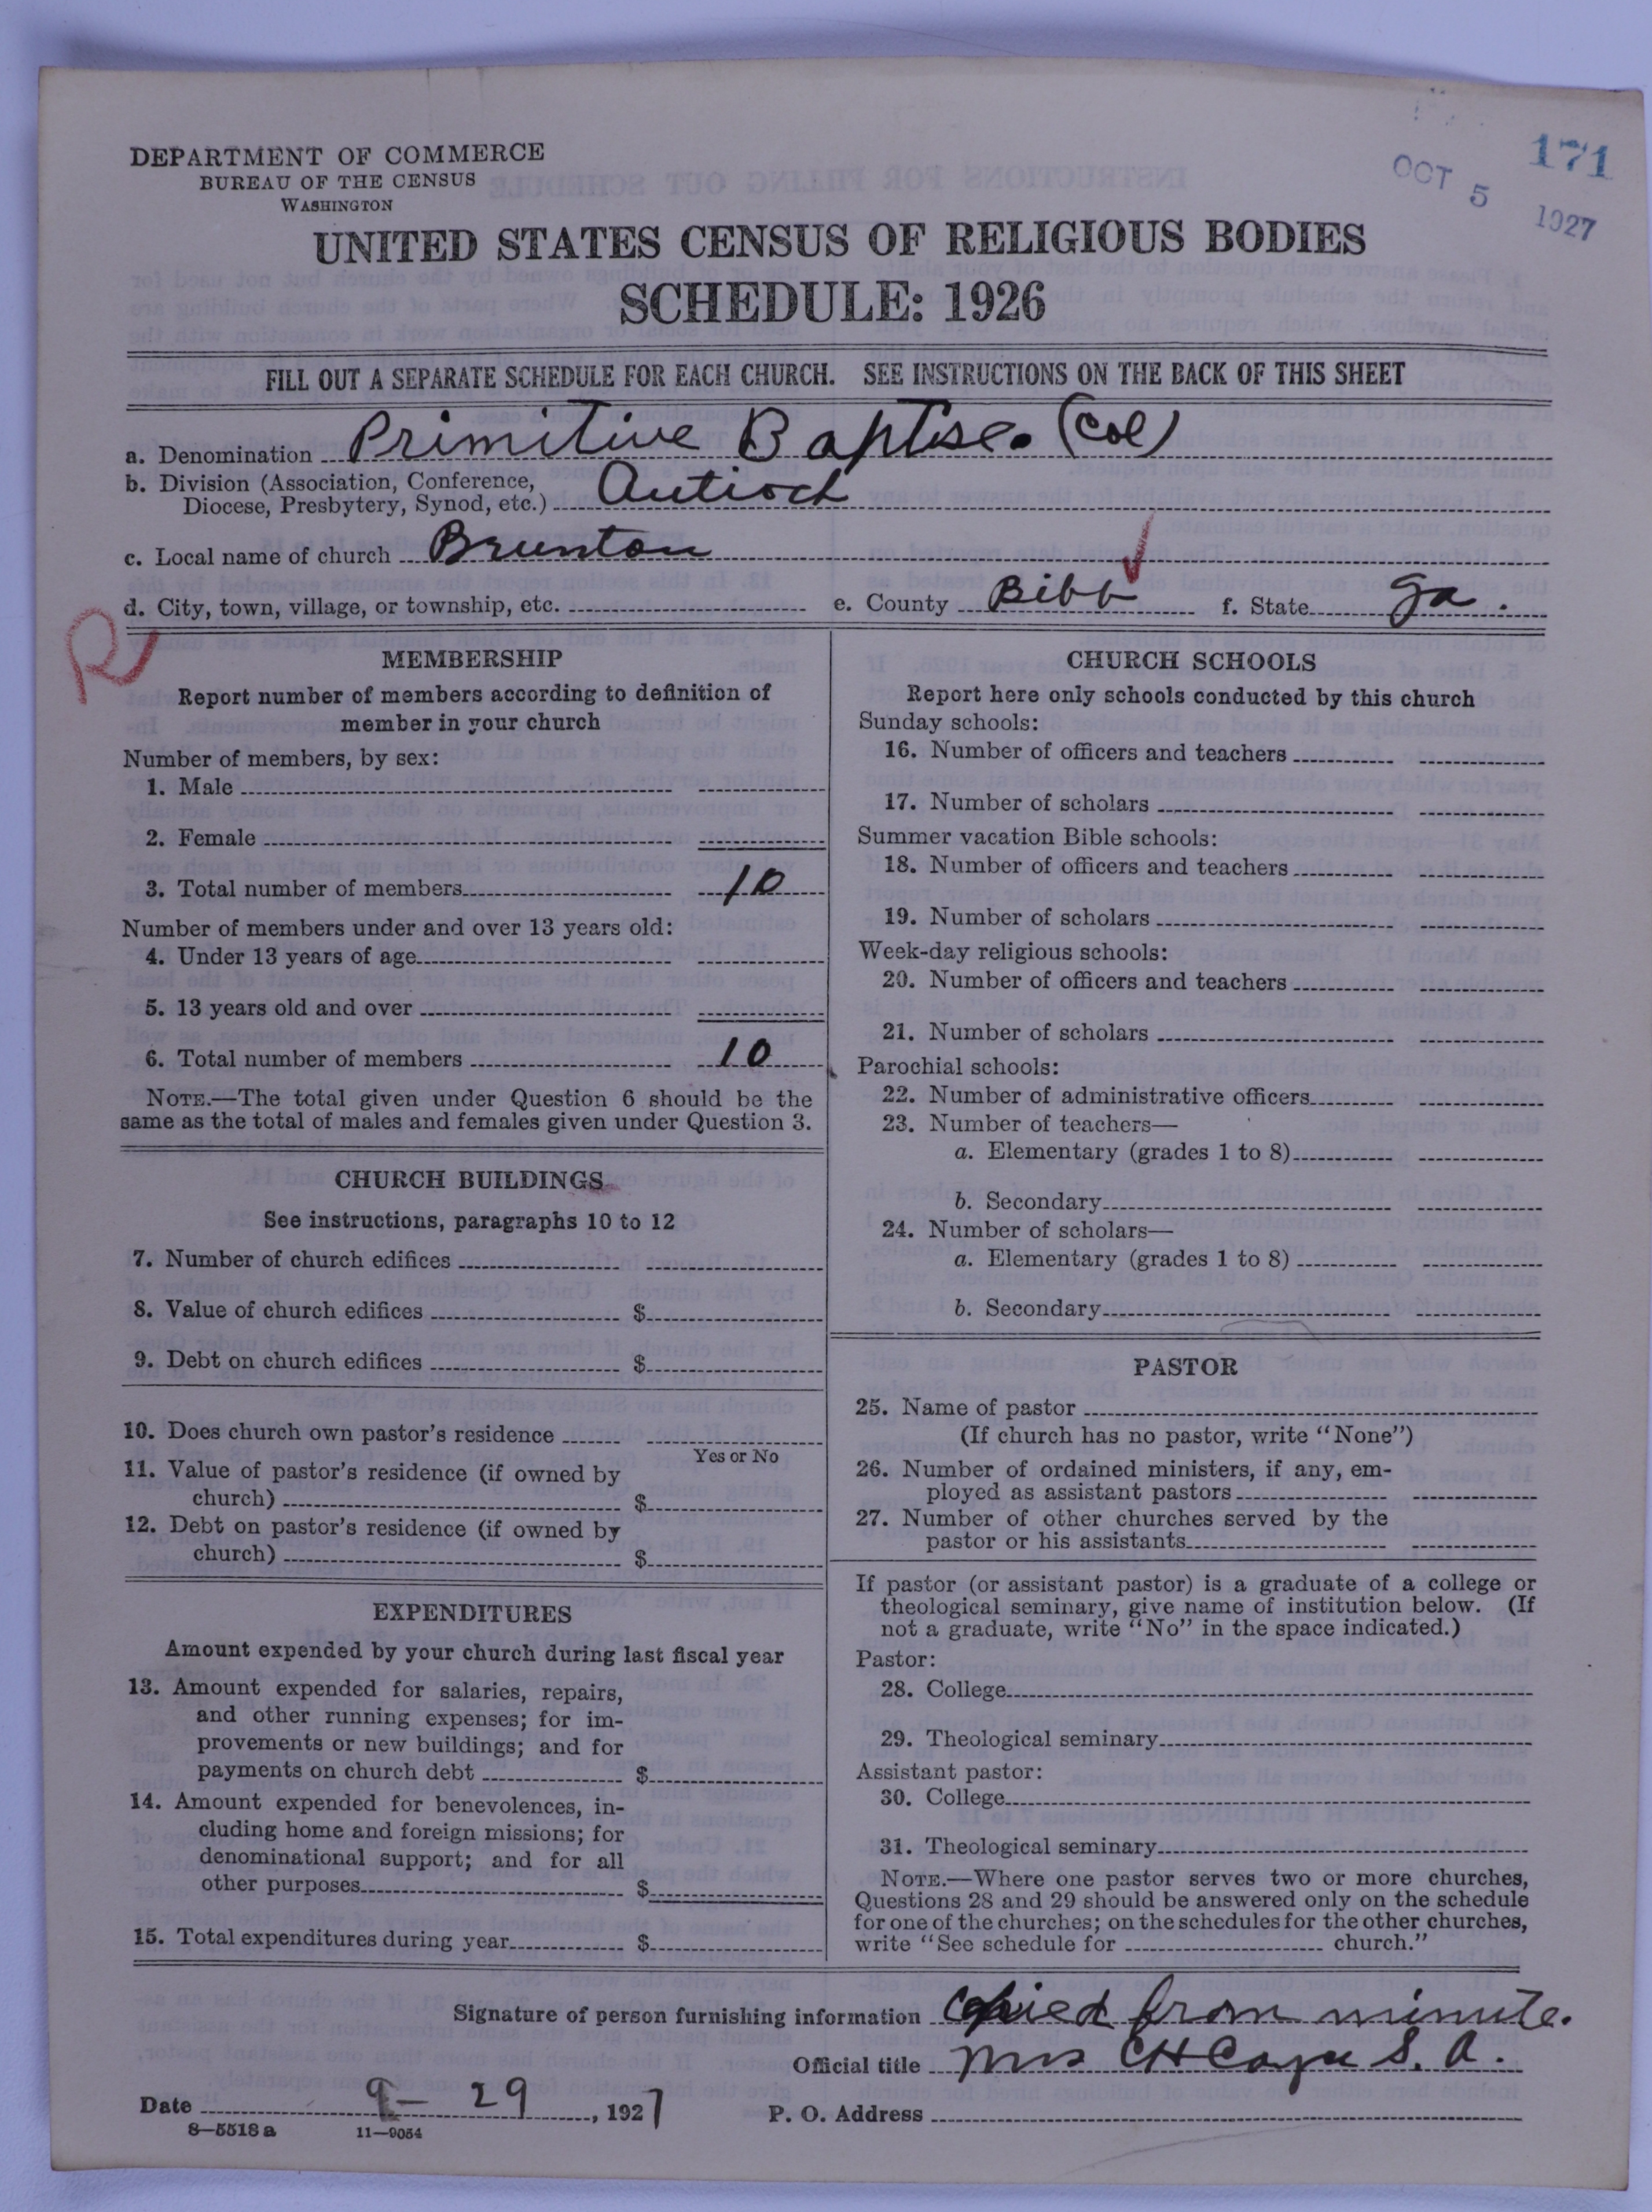 171
OCT 5 1927
DEPARTMENT OF COMMERCE
BUREAU OF THE CENSUS
WASHINGTON
UNITED STATES CENSUS OF RELIGIOUS BODIES
SCHEDULE: 1926
FILL OUT A SEPARATE SCHEDULE FOR EACH CHURCH. SEE INSTRUCTIONS ON THE BACK OF THIS SHEET
a. Denomination Primitive Baptise. (Col)
b. Division (Association, Conference,
Diocese, Presbytery, Synod, etc.) Antioch
c. Local name of church Brunton
d. City, town, village, or township, etc. e. County Bibb f. State Ga.
R
MEMBERSHIP
Report number of members according to definition of
member in your church
Number of members, by sex:
1. Male
2. Female
3. Total number of members 10
Number of members under and over 13 years old:
4. Under 13 years of age
5. 13 years old and over
6. Total number of members 10
NOTE.—The total given under Question 6 should be the
same as the total of males and females given under Question 3.
CHURCH BUILDINGS
See instructions, paragraphs 10 to 12
7. Number of church edifices
8. Value of church edifices $
9. Debt on church edifices $
10. Does church own pastor's residence
Yes or No
11. Value of pastor's residence (if owned by
church) $
12. Debt on pastor's residence (if owned by
church) $
EXPENDITURES
Amount expended by your church during last fiscal year
13. Amount expended for salaries, repairs,
and other running expenses; for im-
provements or new buildings; and for
payments on church debt $
14. Amount expended for benevolences, in-
cluding home and foreign missions; for
denominational support; and for all
other purposes $
15. Total expenditures during year $
CHURCH SCHOOLS
Report here only schools conducted by this church
Sunday schools:
16. Number of officers and teachers
17. Number of scholars
Summer vacation Bible schools:
18. Number of officers and teachers
19. Number of scholars
Week-day religious schools:
20. Number of officers and teachers
21. Number of scholars
Parochial schools:
22. Number of administrative officers
23. Number of teachers—
a. Elementary (grades 1 to 8)
b. Secondary
24. Number of scholars—
a. Elementary (grades 1 to 8)
b. Secondary
PASTOR
25. Name of pastor
(If church has no pastor, write "None")
26. Number of ordained ministers, if any, em-
ployed as assistant pastors
27. Number of other churches served by the
pastor or his assistants
If pastor (or assistant pastor) is a graduate of a college or
theological seminary, give name of institution below. (If
not a graduate, write "No" in the space indicated.)
Pastor:
28. College
29. Theological seminary
Assistant pastor:
30. College
31. Theological seminary
NOTE.—Where one pastor serves two or more churches,
Questions 28 and 29 should be answered only on the schedule
for one of the churches; on the schedules for the other churches,
write "See schedule for church."
Signature of person furnishing information Copied from minute.
Official title Mrs C H S. A.
Date 9-29, 1927 P. O. Address
8—5518 a 11—9054